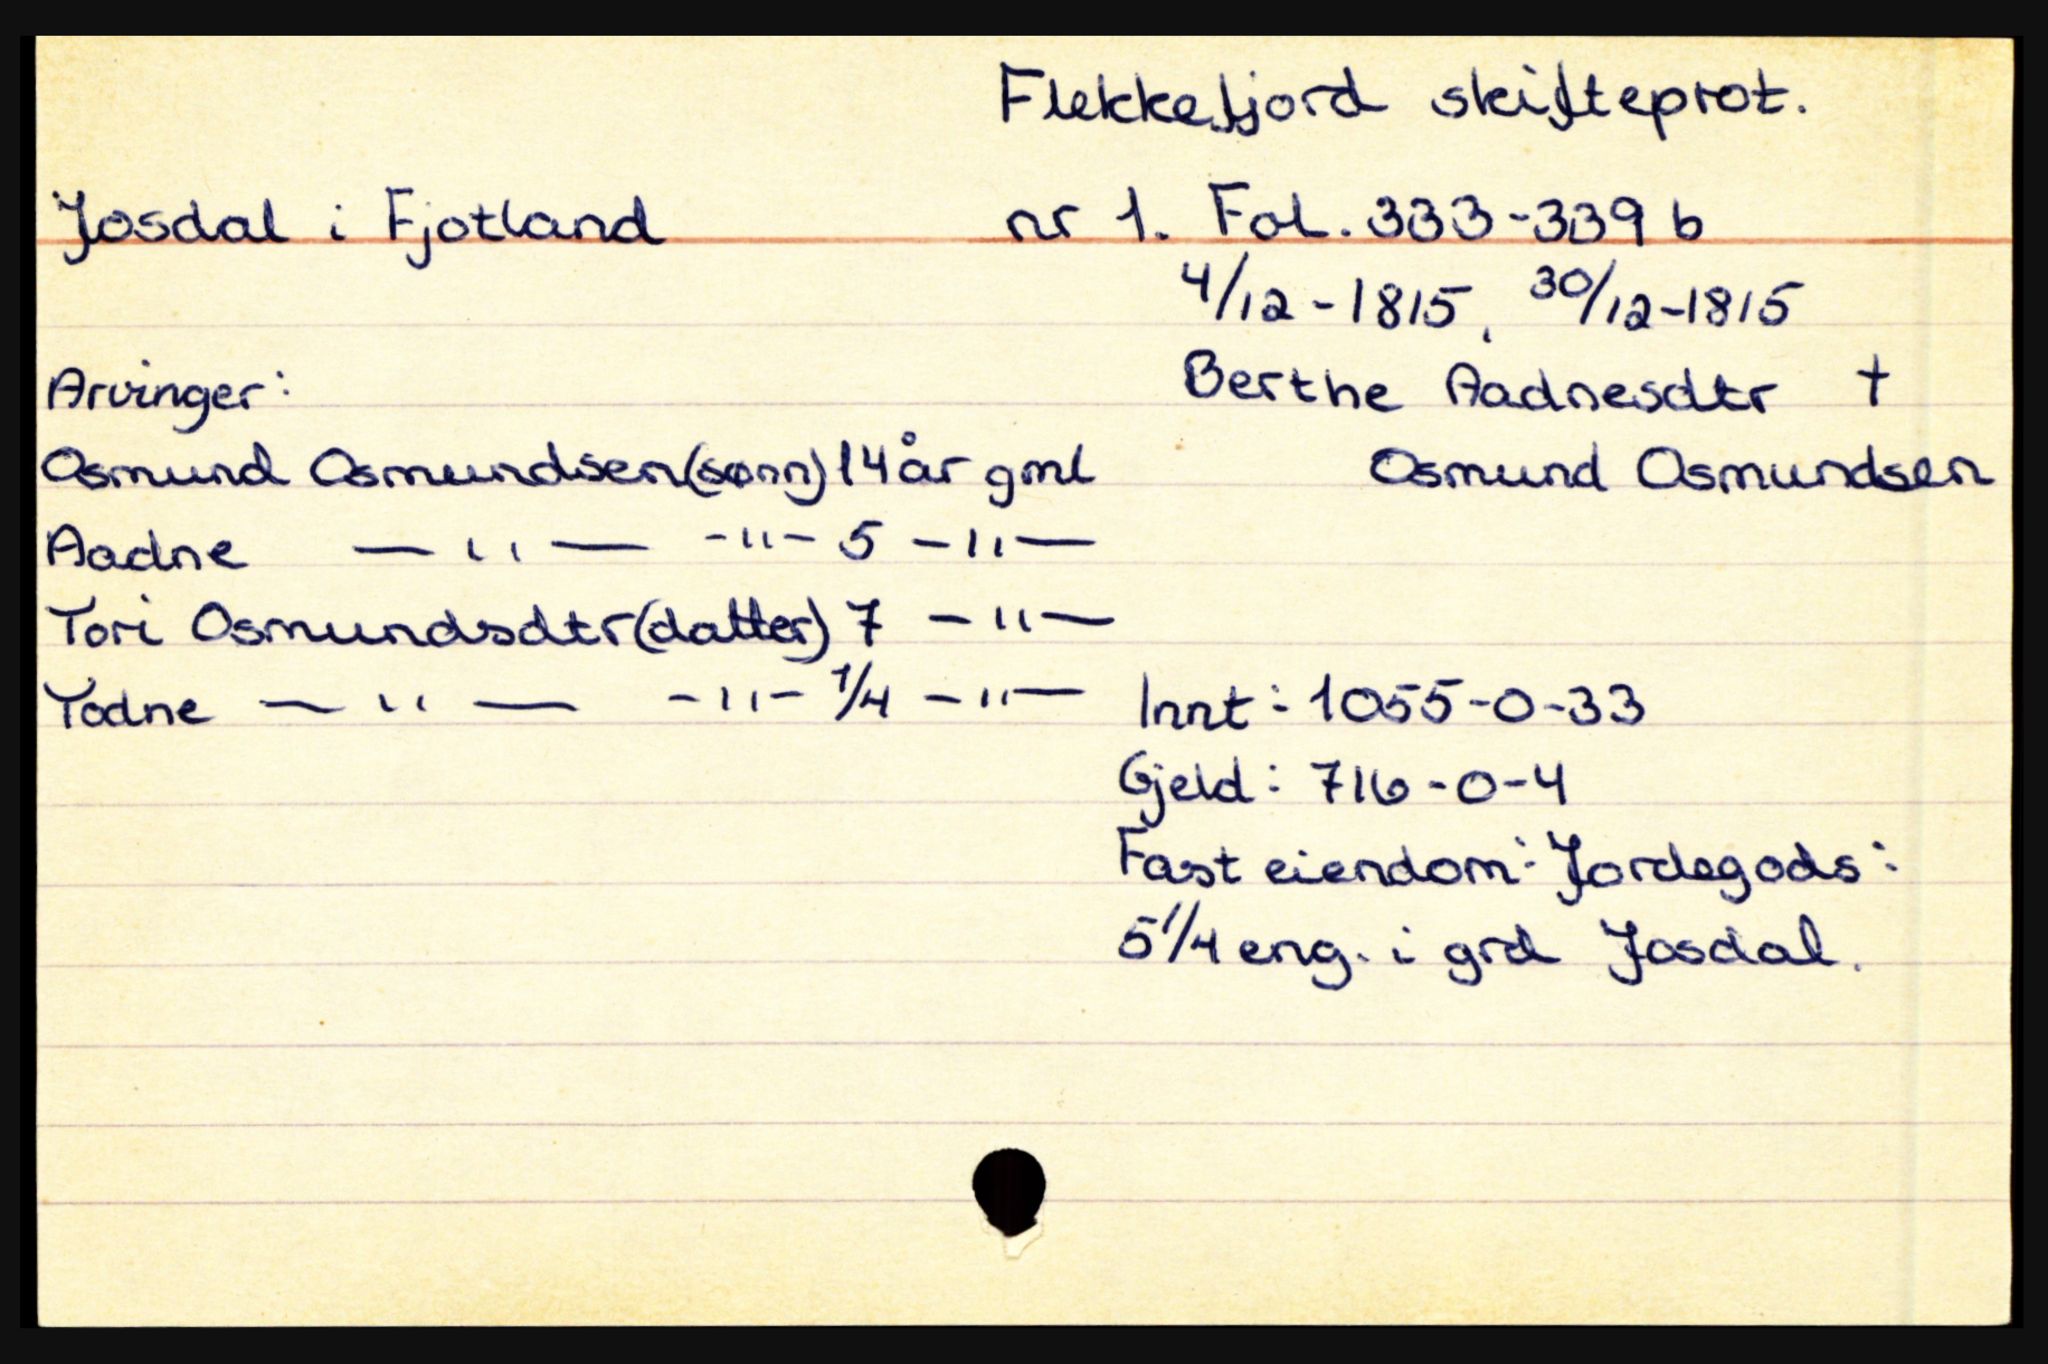 Flekkefjord skifteprot.
Josdal i Fjotland nr 1. Fol. 333-339 b
4/12-1815, 30/12-1815
Arvinger: Berthe Aadnesdtr †
Osmund Osmundsen(sønn) 14 år gml Osmund Osmundsen
Aadne — " — -"- 5 -"-
Tori Osmundsdtr(datter) 7 -"-
Todne — " — -"- 1/4 -"- Innt: 1055-0-33
Gjeld: 716-0-4
Fast eiendom: Jordegods:
5 1/4 eng. i grd Josdal.